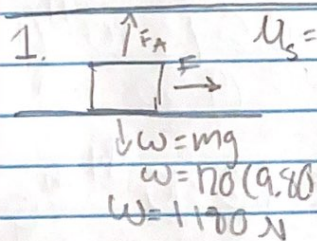 1. ↑FA μs=
F →
↓ω=mg
ω=120(9.80
ω=1180 N